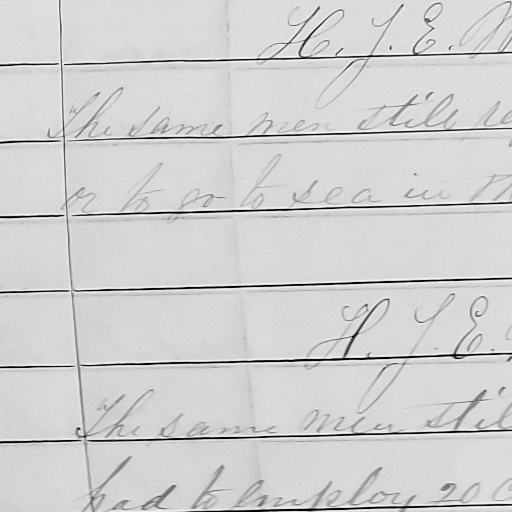 H. J. E.
The same men still
or to go to sea in
H. J. E.
The same men
had to employ 20